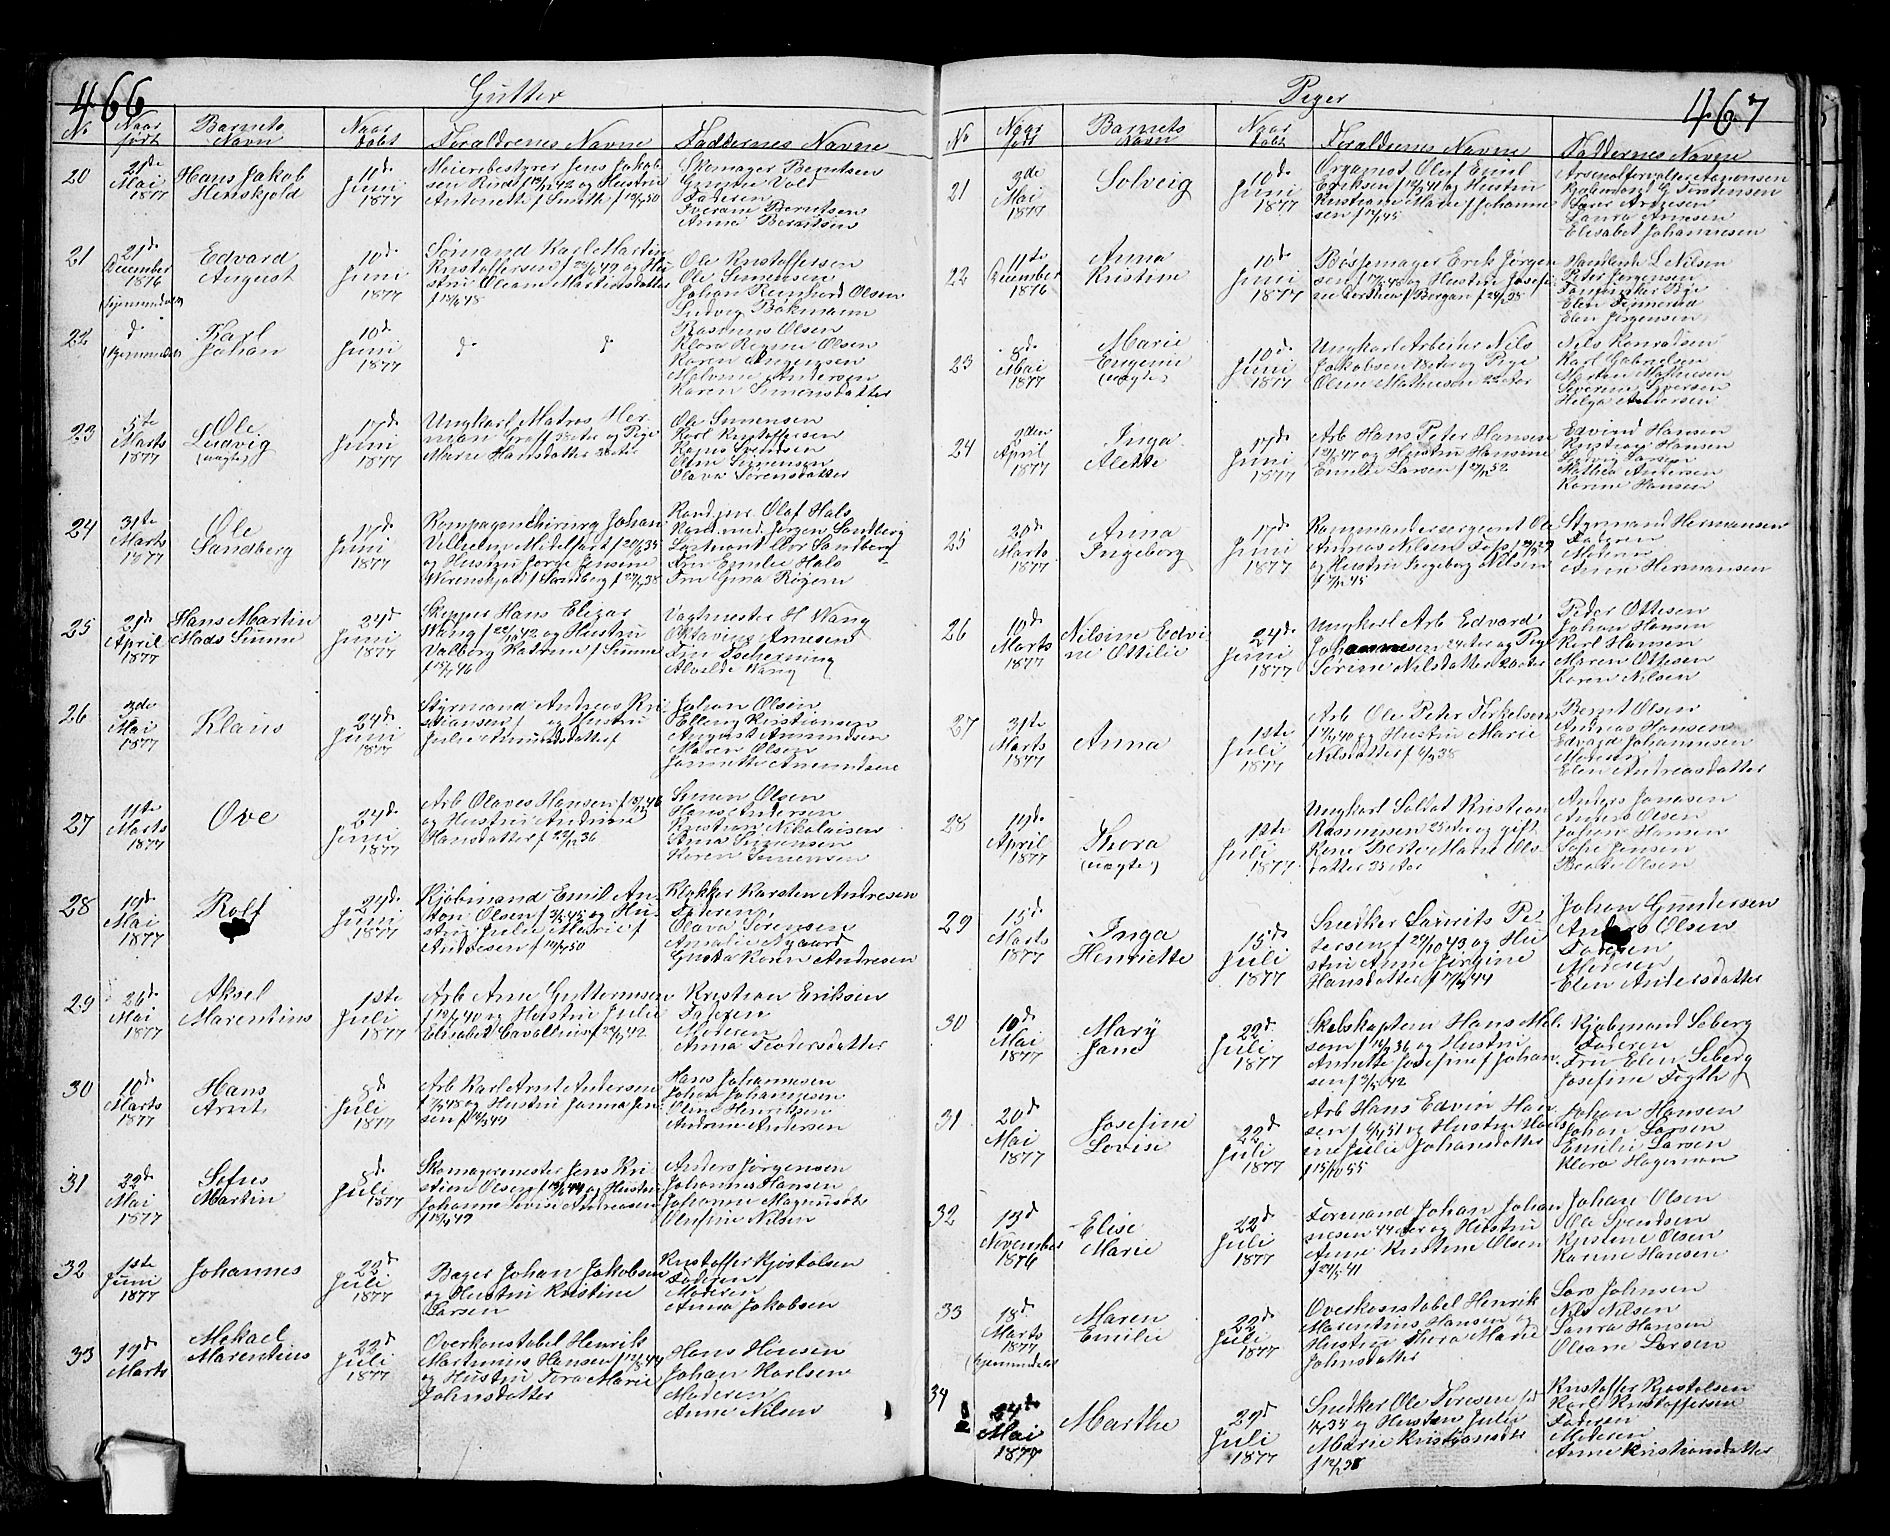 466
Gutter
No
Naar født
Barnets Navn
Naar døbt
Foraldrenes Navne
Faddernes Navne
20
21de Mai 1877
Hans Jakob
Hinskjold
10de Juni 1877
Meieribestyrer Jens Jakob-
sen Rind f 42 og Hustru
Antonette f Smith f 50
Skomager Berntsen
Vold
Faderen
Iveram Berntsen
Anna Berntsen
21
21de December 1876
(hjemmedøbt)
Edvard
August
10de Juni 1877
Sømand Karl Martin
Kristoffersen f 49 og Hu-
stru Oleane Martinsdatter
f 48
Ole Kristoffersen
Ole Simensen
Johan Reinhard Olsen
Ludvig Bakmann
22
d
(hjemmedøbt)
Karl
Johan
10de Juni 1877
d d
Rasmus Olsen
Klara Regine Olsen
Karen Jørgensen
Malvine Andersen
Karen Simensdatter
23
5te Marts 1877
Ole
Ludvig
(uægte)
17de Juni 1877
Ungkarl Matros Her-
man Graff og Pige
Marie Hansdatter
Ole Simensen
Karl Kristoffersen
Olava Sørensdatter
24
31te Marts 1877
Ole
Sandberg
17de Juni 1877
Kompagnichirurg Johan
Vilhelm Midelfart f 35
og Hustru
Werenskjold f Sandberg f 38
Kand. jur. Olaf Hals
Kand. med. Jørgen Sandberg
Løitnant Sandberg
Fru Emilie Hals
Fru Gina Røgem
25
29de April 1877
Hans Martin
Mads Sinne
24de Juni 1877
Skipper Hans Elizar
Wang f 42 og Hustru
Valborg Katrine f Sinne
f 46
Vagtmester H Wang
Oktavius Arnesen
Fru Tscherning
Alvilde Wang
26
3de Mai 1877
Klaus
24de Juni 1877
Styrmand Andreas Kri-
stiansen f og Hustru
Julie Amundsdatter f
Johan Olsen
Elling Kristiansen
August Amundsen
Maren Olsen
Jannette Amundsen
27
11te Marts 1877
Ove
24de Juni 1877
Arb Olaves Hansen f 46
og Hustru Andrine
Hansdatter f 36
Simen Olsen
Hans Andersen
Kristian Nikolaisen
Anna Simensen
Karen Simensen
28
19de Mai 1877
Rolf
24de Juni 1877
Kjøbmand Emil An-
ton Olsen f 45 og Hu-
stru Julie Marie f
Andresen f 50
Klokker Karsten Andresen
Faderen
Olava Sørensen
Amalie Nygaard
Gusta Karen Andresen
29
26de Mai 1877
Aksel
Marentius
1ste Juli 1877
Arb Arne Guttormsen
f 40 og Hustru Julie
Elisabet Cavallius f 42
Kristian Eriksen
Faderen
Moderen
Anna Teodorsdatter
30
10de Marts 1877
Hans
Arnt
8de Juli 1877
Arb Karl Arnt Andersen
f 48 og Hustru Janna Jen-
sen f 49
Hans Johannesen
Johan Johannesen
Oline Henriksen
Andrine Andersen
31
22de Mai 1877
Sofus
Martin
8de Juli 1877
Skomagermester Jens Kri-
stian Olsen f 44 og Hustru
Johanne Lovise Andreasen
f 49
Anders Jørgensen
Johannes Hansen
Johanne Magnusdtr
Olufine Nilsen
32
1ste Juni 1877
Johannes
22de Juli 1877
Bager Johan Jakobsen
og Hustru Kristine
Larsen
Kristoffer Kjøstolsen
Faderen
Moderen
Anna Jakobsen
33
19de Marts
Mikael
Marentius
22de Juli 1877
Overkonstabel Henrik
Martinius Hansen f 44
og Hustru Tora Marie
Johnsdatter
Hans Hansen
Johan Karlsen
Moderen
Anne Nilsen
467
Piger
No
Naar født
Barnets Navn
Naar døbt
Foraldrenes Navne
Faddernes Navne
21
3de Mai 1877
Solveig
10de Juni 1877
Organist Oluf Emil
Eriksen f 41 og Hustru
Kristiane Marie f Johanne-
sen f 45
Arsenalforvalter Aronsen
Kjøbmand G Torstensen
Laura Arnesen
Elisabet Johannesen
22
11te December 1876
Anna
Kristine
10de Juni 1877
Bøssemager Erik Jørgen-
sen f 48 og Hustru Josefi-
ne Dorthea f Borgan f 38
Handlende L Nilsen
Peter Jørgensen
Elen Jørgensen
23
8de Mai 1877
Marie
Eugenie
(uægte)
10de Juni 1877
Ungkarl Arbeider Nils
Jakobsen og Pige
Oline Mathisen 22 Aar
Nils Konradsen
Karl Gabrielsen
Martin Mathisen
Severine Syversen
Helga Andersen
24
9den April 1877
Inga
Alette
17de Juni 1877
Arb Hans Peter Hansen
f 47 og Hustru Hansine
Emilie Larsen f 52
Edvind Hansen
Kristian Hansen
Ludvig Larsen
Mathea Andersen
Karine Hansen
25
20de Marts 1877
Anna
Ingeborg
17de Juni 1877
Kommandersergeant Ole
Andreas Nilsen Foss f 29
og Hustru Ingeborg Nilsen
f 45
Styrmand Hermansen
Faderen
Moderen
Anne Hermansen
26
10de Marts 1877
Nilsine Edvi-
ne Ottilie
24de Juni 1877
Ungkarl Arb Edvard
Johannesen 24 Aar og Pige
Sørine Nilsdatter 20 Aar
Peder Ottesen
Johan Hansen
Karl Hansen
Maren Ottesen
Karen Nilsen
27
31te Marts 1877
Anna
1ste Juli 1877
Arb Ole Peter Terkelsen
f 40 og Hustru Marie
Nilsdatter f 38
Bernt Olsen
Andreas Hansen
Edvard Johannesen
Moderen
Elen Andreasdatter
28
19de April 1877
Thora
(uægte)
1ste Juli 1877
Ungkarl Soldat Kristian
Rasmussen 23 Aar og gift
Kone Berte Marie Ols-
datter 35 Aar
Anders Jonasen
Anders Olsen
Johan Hansen
Sofie Jensen
Beate Olsen
29
15de Marts 1877
Inga
Henriette
15de Juli 1877
Snedker Laurits Pe-
tersen f 29/10 43 og Hu-
stru Anne Jørgine
Hansdatter f 44
Johan Gundersen
Anders Olsen
Faderen
Moderen
Elen Andersdatter
30
10de Mai 1877
Mary
Jane
22de Juli 1877
Skibskaptein Hans Mel-
som f 36 og Hustru
Annette Josefine f Johan-
sen f 42
Kjøbmand Seberg
Faderen
Fru Elen Seberg
Josefine Fogth
31
20de Mai 1877
Josefine
Lovise
22de Juli 1877
Arb Hans Edvin Han-
sen f 51 og Hustru Hans-
ine Julie Johansdatter
f 15/10 55
Johan Hansen
Johan Larsen
Emilie Larsen
Klara Hageman
32
13de November 1876
Elise
Marie
22de Juli 1877
Formand Johan Johan-
nesen 44 Aar og Hustru
Anne Kristine Olsen
f 41
Johan Olsen
Ole Svendsen
Kristine Olsen
Karine Hansen
33
18de Marts 1877
(hjemmedøbt)
Maren
Emilie
22de Juli 1877
Overkonstabel Henrik
Marentius Hansen og
Hustru Thora Marie
Johnsdatter
Lars Johnsen
Nils Nilsen
Laura Hansen
Oleane Larsen
34
24de Mai 1877
Marthe
29de Juli 1877
Snedker Ole Toresen f
34 og Hustru Julie
Marie Kristiansdtr
f 38
Kristoffer Kjøstolsen
Karl Kristoffersen
Faderen
Moderen
Anne Kristiansdatter